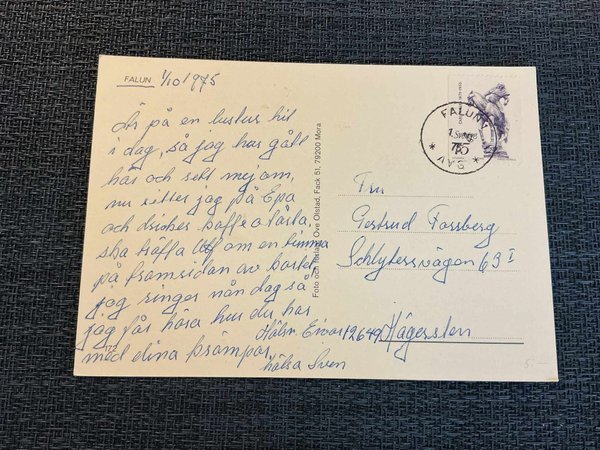 FALUN 1/10 1975
Är på en bustur hit
i dag, så jag har gått
här och sett mej om,
nu sitter jag på Epa
och dricker kaffe o tårta,
ska träffa om en timma
på framsidan av kortet
jag ringer nån dag så
jag får höra hur du har
med dina krämpor,
Hälsn Eivor
hälsa Sven
172
Foto och förlag: Ove Olstad, Fack 51, 79200 Mora
FALUN
75
* AVG *
Fru
Gertrud Forsberg
Schlytersvägen 63 I
12649 Hägersten
5:-